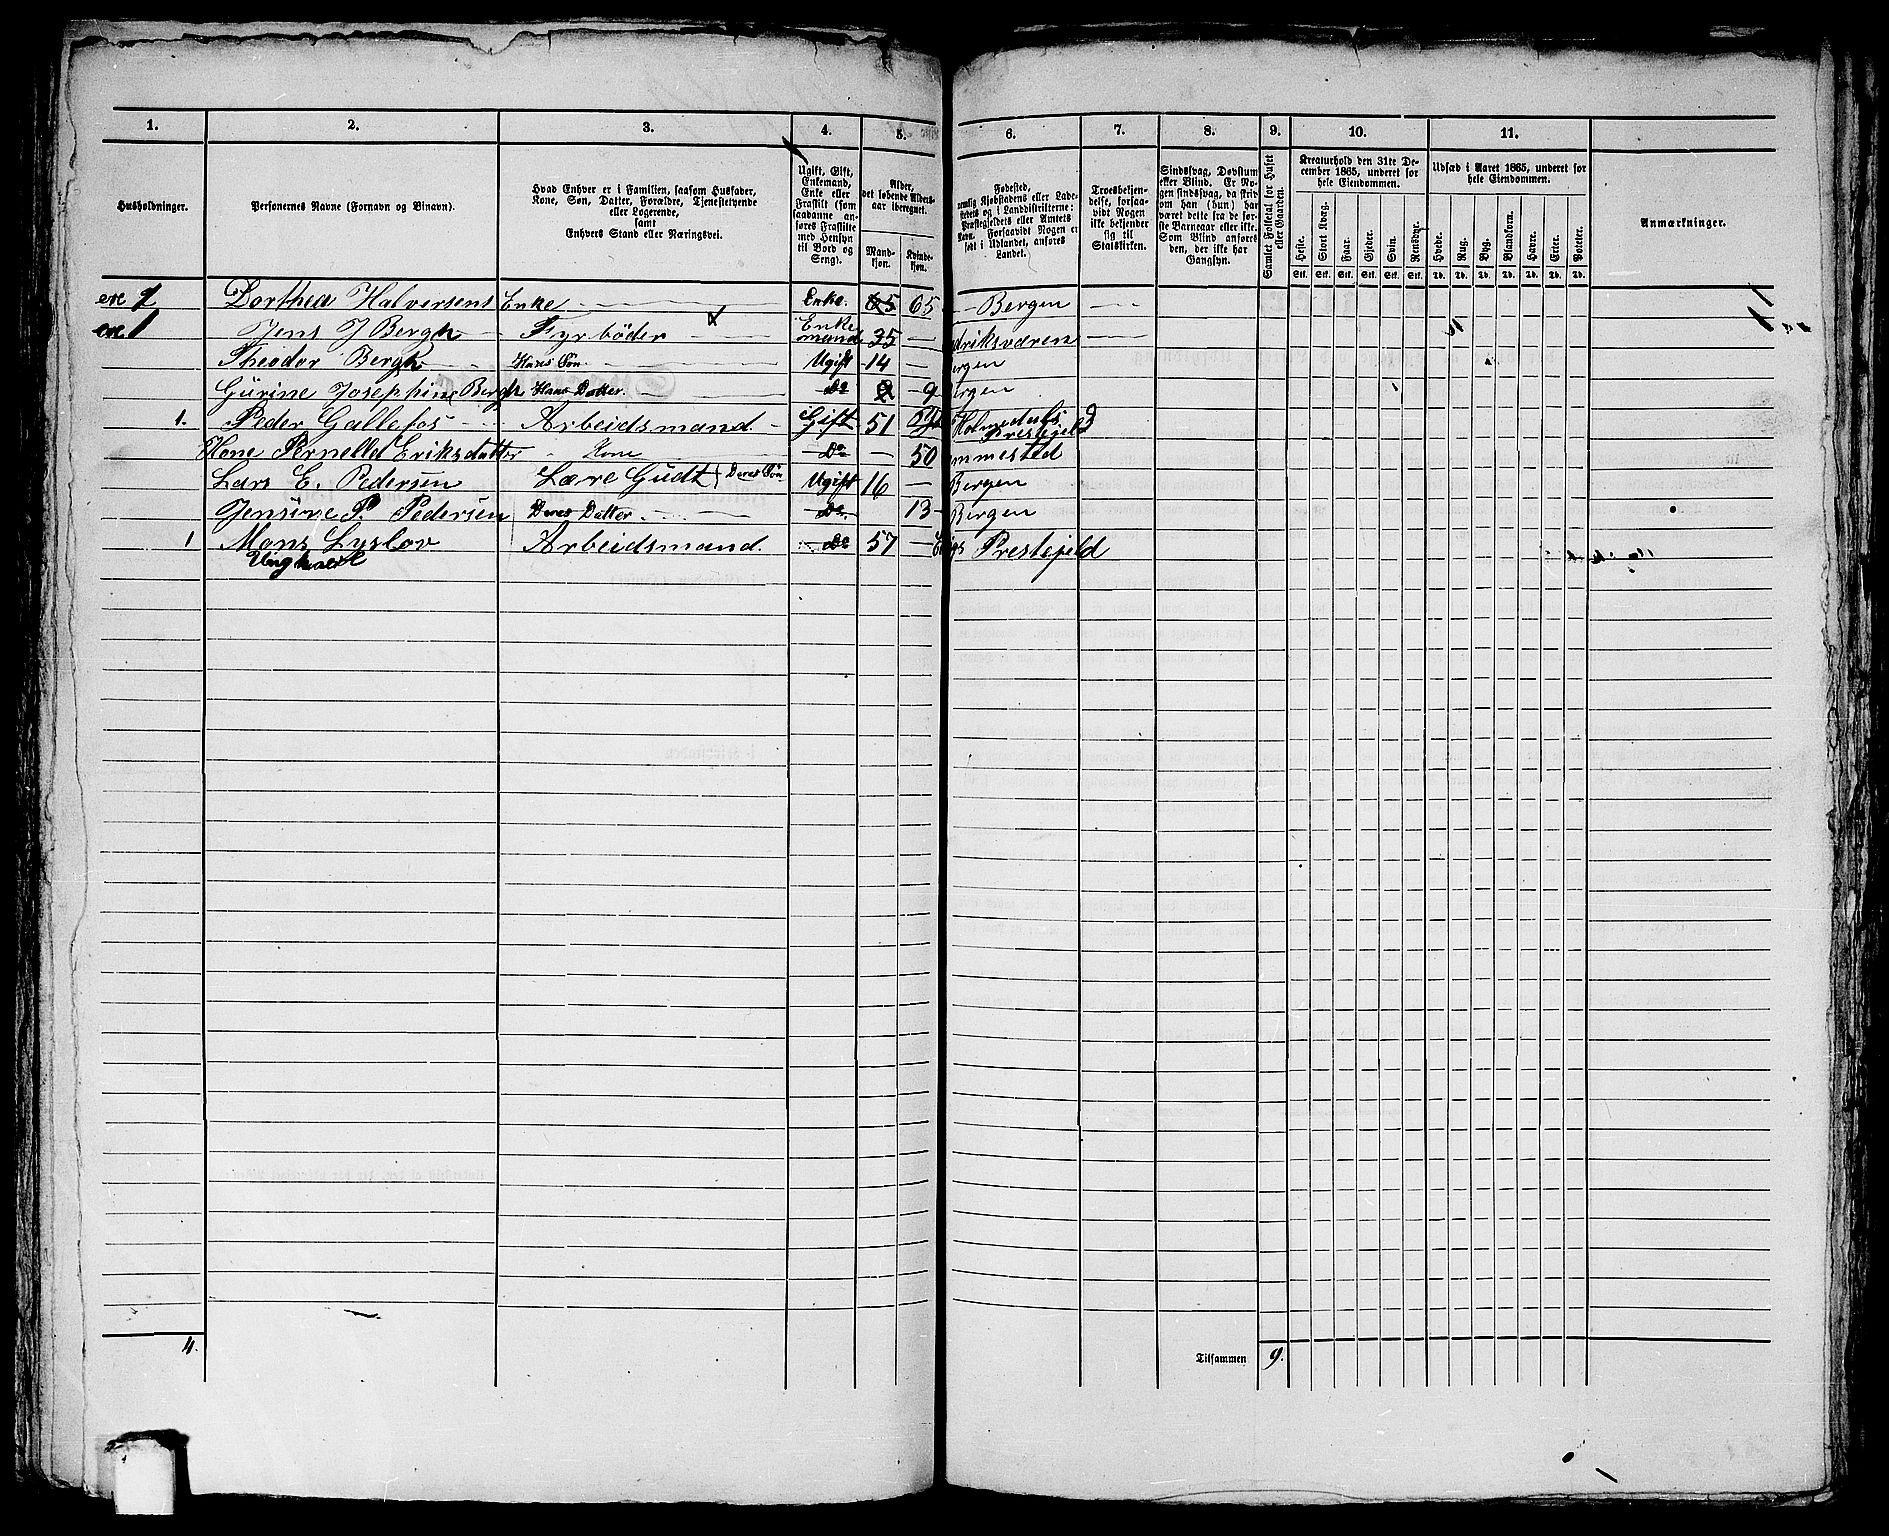 1. 2. 3. 4. 5. 6. 7. 8. 9. 10. 11.
Husholdninger.
Personernes Navne (Fornavn og Binavn).
Hvad Enhver er i Familien, saasom Husfader,
Kone, Søn, Datter, Forældre, Tjenestetyende
eller Logerende,
samt
Enhvers Stand eller Næringsvei.
Ugift, Gift,
Enkemand,
Enke eller
Fraskilt (som
saadanne an-
føres Fraskilte
med Hensyn
til Bord og
Seng).
Alder,
det løbende Alders-
aar iberegnet.
Mand-
kjøn.
Kvinde-
kjøn.
Fødested,
nemlig Kjøbstadens eller Lade-
stedets og i Landdistrikterne:
Præstegjeldets eller Amtets
Navn. Forsaavidt Nogen er
født i Udlandet, anføres
Landet.
Troesbekjen-
delse, forsaa-
vidt Nogen
ikke bekjender
sig til
Statskirken.
Sindssvag, Døvstum
eller Blind. Er No-
gen sindssvag, da skrives
om han (hun) har
været dette fra de før-
ste Barneaar eller ikke.
Som Blind anføres
den, der ikke har
Gangsyn.
Samlet Folketal for Huset
eller Gaarden.
Kreaturhold den 31te De-
cember 1865, underet for
hele Eiendommen.
Heste. Stort Kvæg. Faar. Gjeder. Svin. Rensdyr.
Stk. Stk. Stk. Stk. Stk. Stk.
Udsæd i Aaret 1865, underet for
hele Eiendommen.
Hvede. Rug. Byg. Blandkorn. Havre. Erter. Poteter.
Td. Td. Td. Td. Td. Td. Td.
Anmærkninger.
1 Dorthea Halversens Enke Enke. 65 Bergen
1 Jens J Bergh Fyrbøder Enke
mand 35 driksværen
Theodor Bergh Hans Søn Ugift 14 ergen
Gurine Josephine Bergh Hans Datter. Do 9 ergen
1. Peder Gallefos Arbeidsmand Gift 51 Holmedals
Prestegjeld
Kone Pernelle Eriksdatter Kone Do 50 mmestad
Lars E. Pedersen Lære Gudt Deres Søn Ugift 16 Bergen
Jensine P. Pedersen Deres Datter Do. 13 Bergen
1 Mons Lyslov Arbeidsmand. Do 57 Prestejeld
Ungkarl
4. Tilsammen 9.